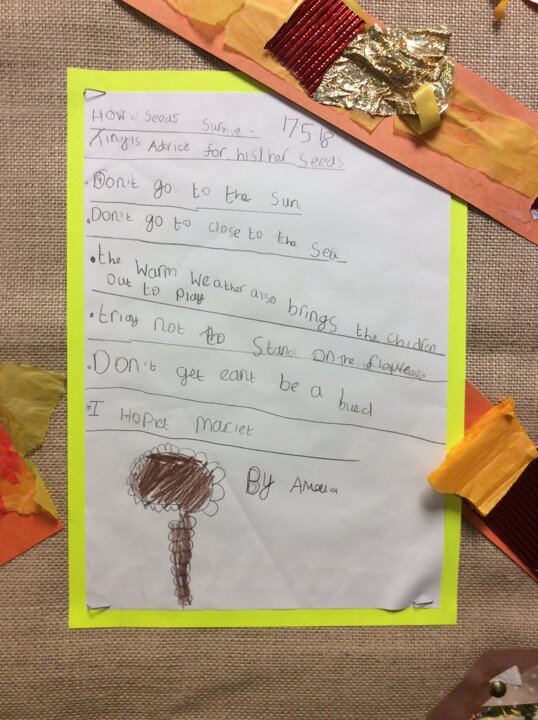 HOW Seeds Survive. 17.5.18
Tiny's Advice for his/her Seeds
Don't go to the Sun
Don't go to close to the Sea
the warm weather also brings the chidren
out to play
triay not to Stand on the
Don't get eant be a bued
I Hopet Maciet
By Amelia